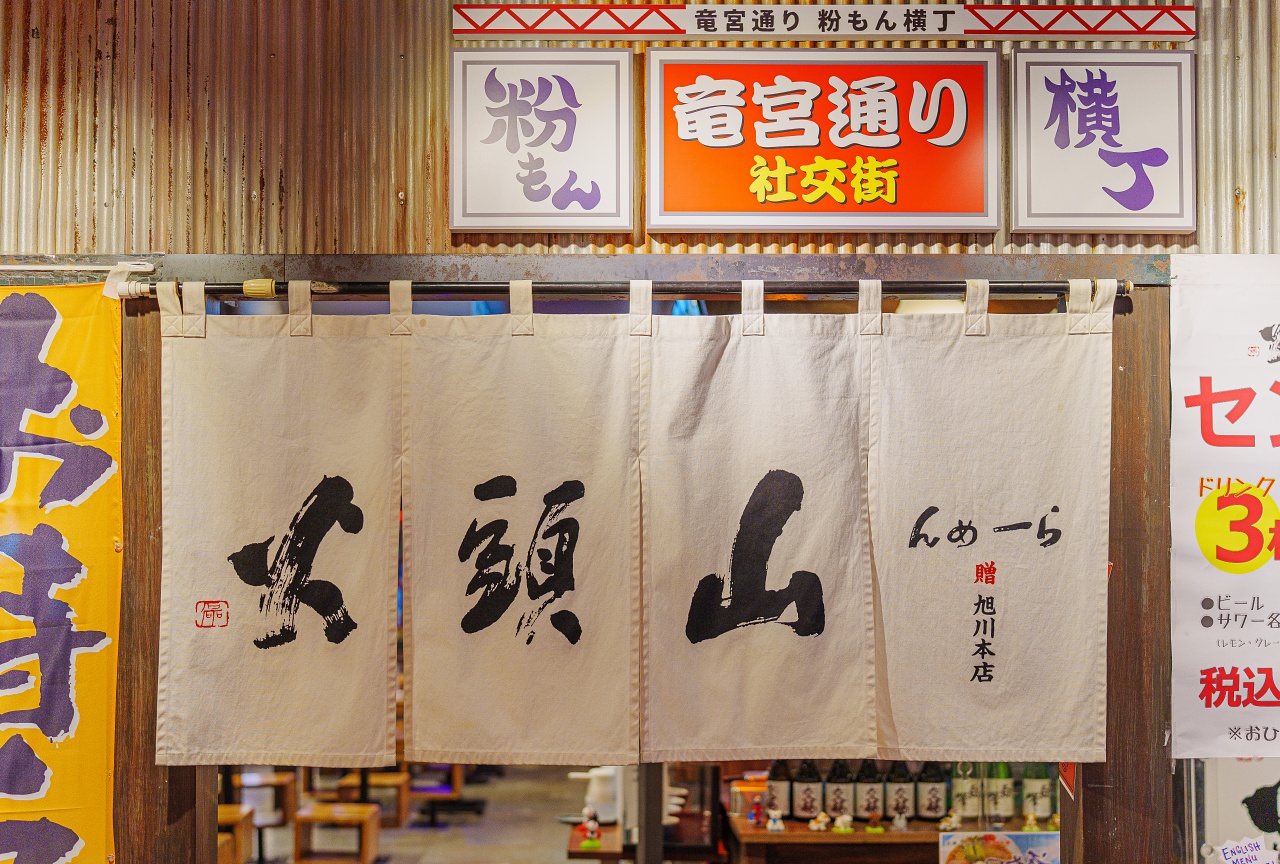 竜宮通り 粉もん横丁
粉もん
竜宮通り
社交街
横丁
らーめん
山頭火
贈
旭川本店
セン
ドリンク
3
●ビール
●サワー各
(レモン・グレー
税込
※おひ
ENGLISH
MENU